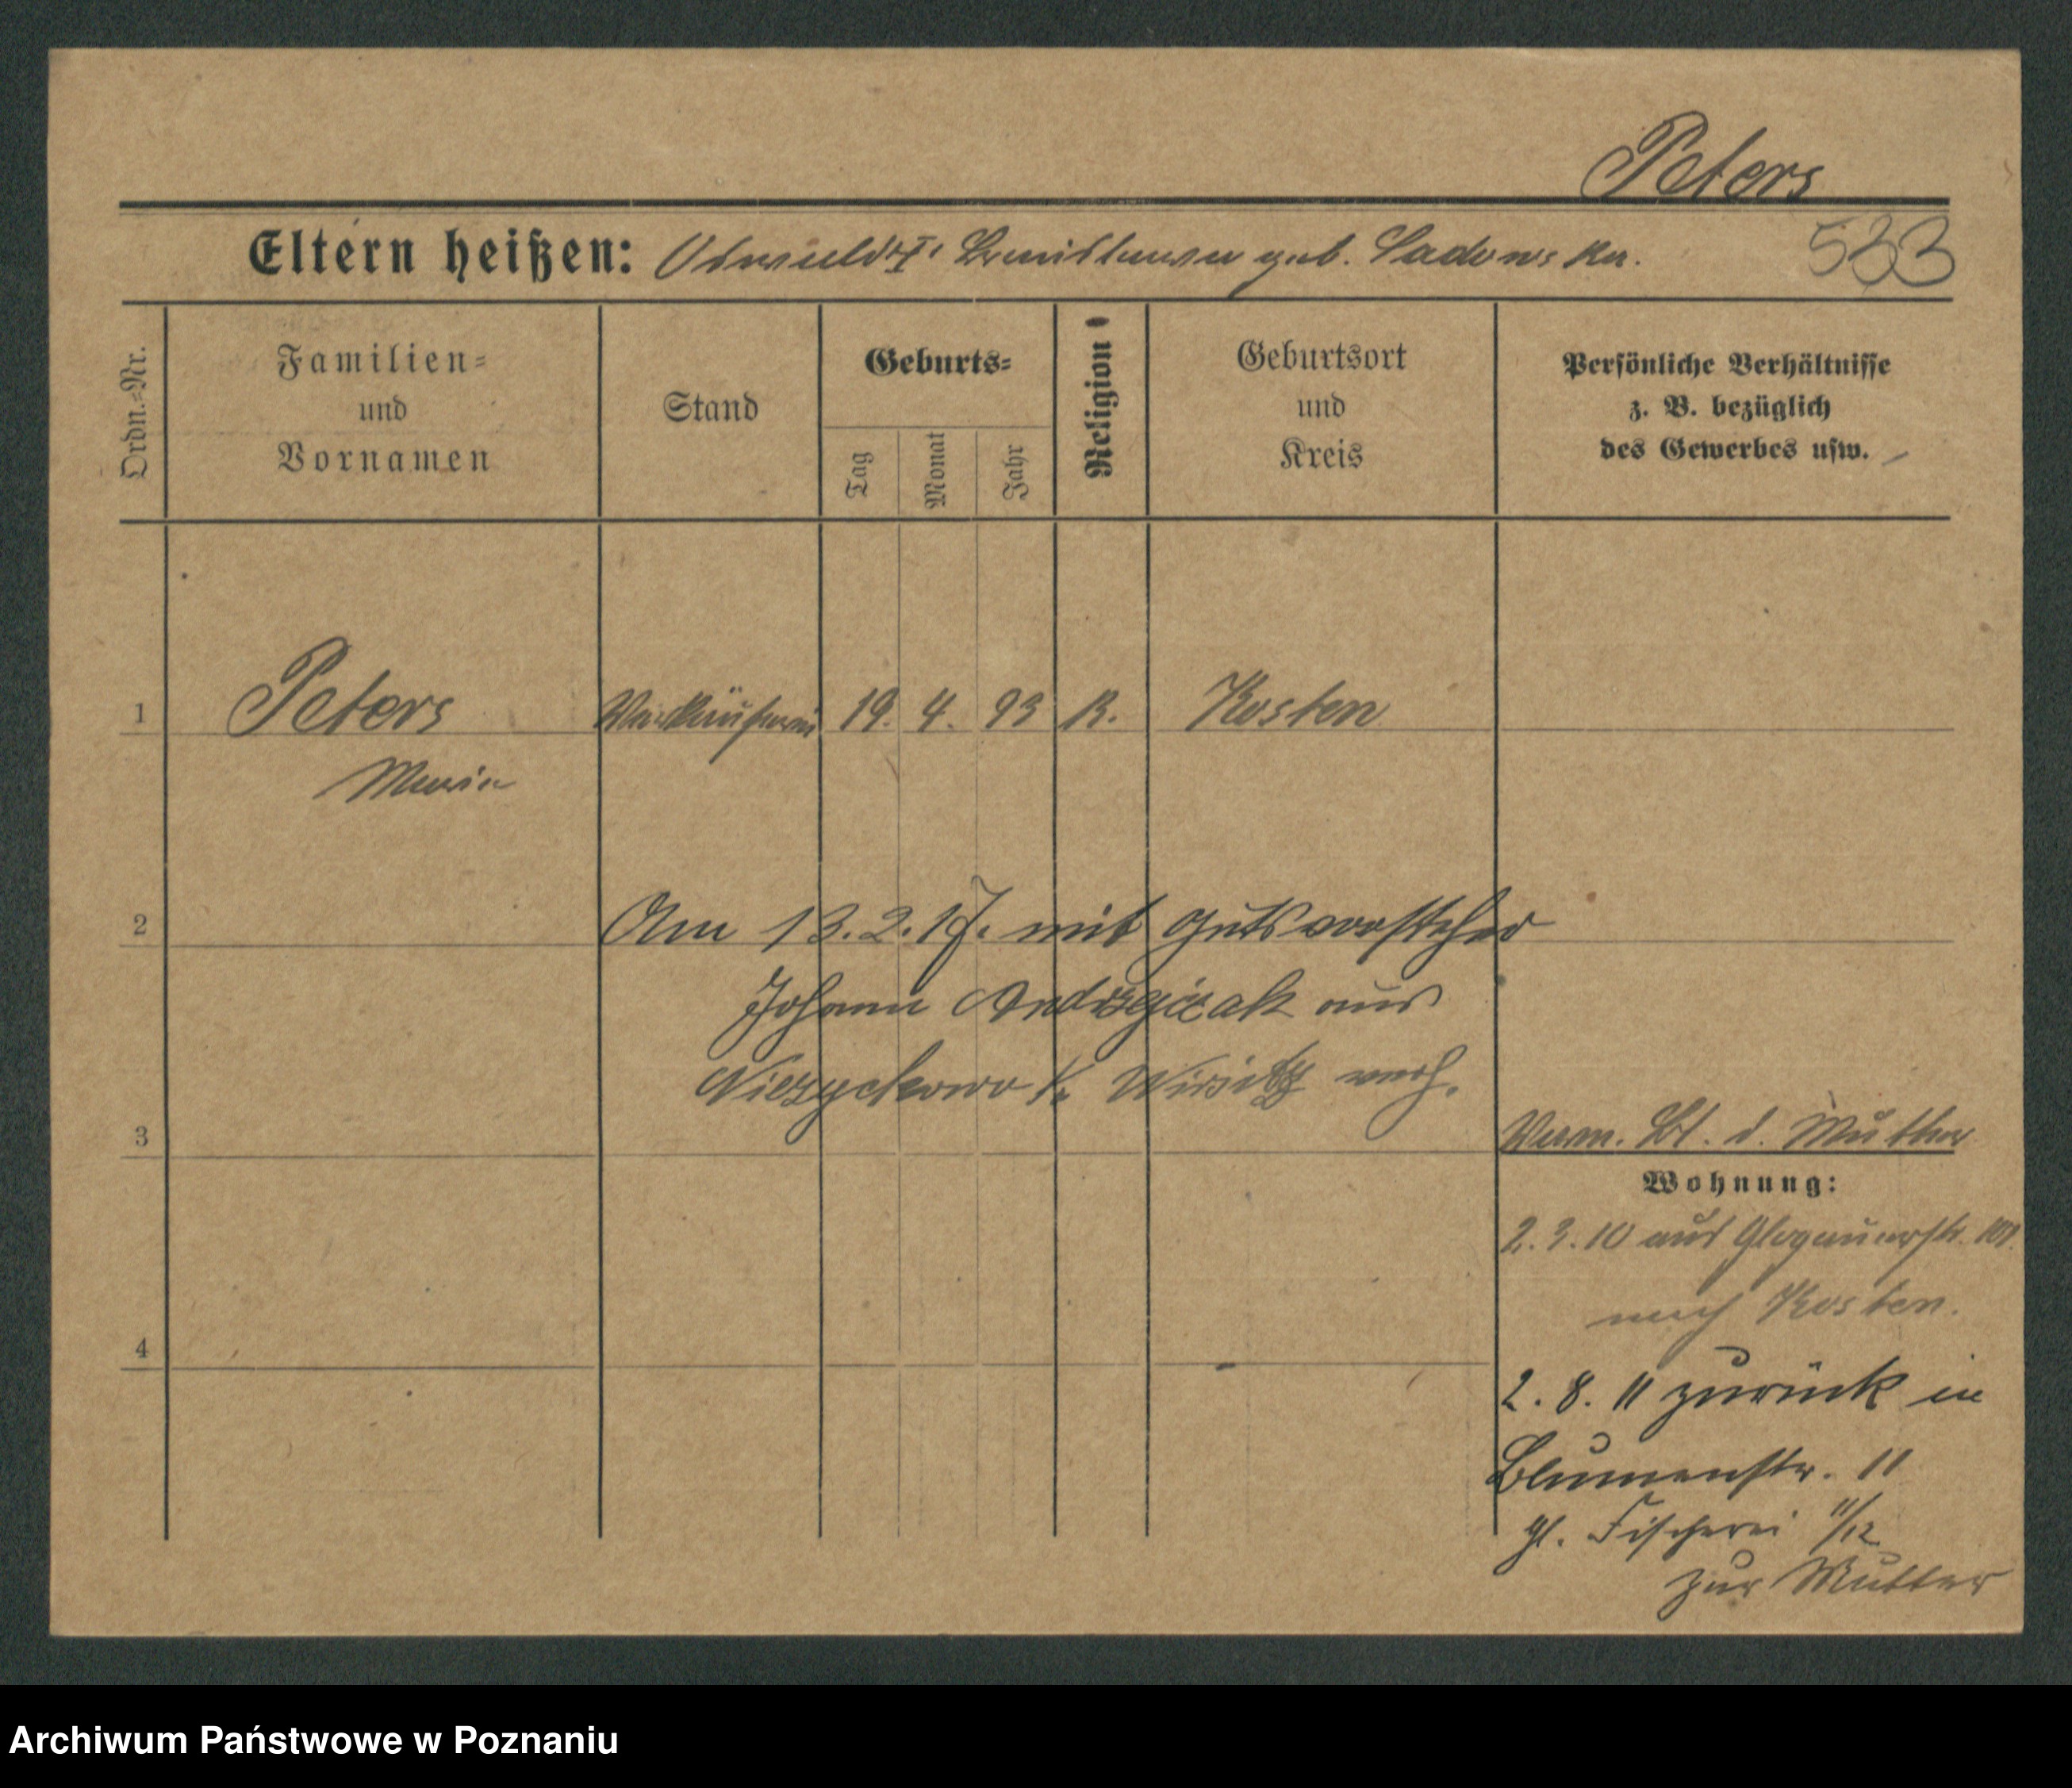 Peters
Eltern heißen: Oswald † Bronislawa geb. Sadowska. 533
Ordn.-Nr.
Familien- und Vornamen
Stand
Geburts-
Tag
Monat
Jahr
Religion
Geburtsort und Kreis
Persönliche Verhältnisse
z. B. bezüglich
des Gewerbes usw.
1 Peters Verkäuferin 19. 4. 93 K. Kosten
Maria
2 Am 13.2.17. mit Gutsvorsteher
Johann Andrzejczak aus
Niezychowo K. Wirsitz verh.
3 Verm. Bl. d. Mutter
Wohnung:
2.3.10 aus Glogauerstr. 101
nach Kosten.
4
2.8.11 zurück in
Blumenstr. 11
gl. Fischerei 11/12
zur Mutter
Archiwum Państwowe w Poznaniu